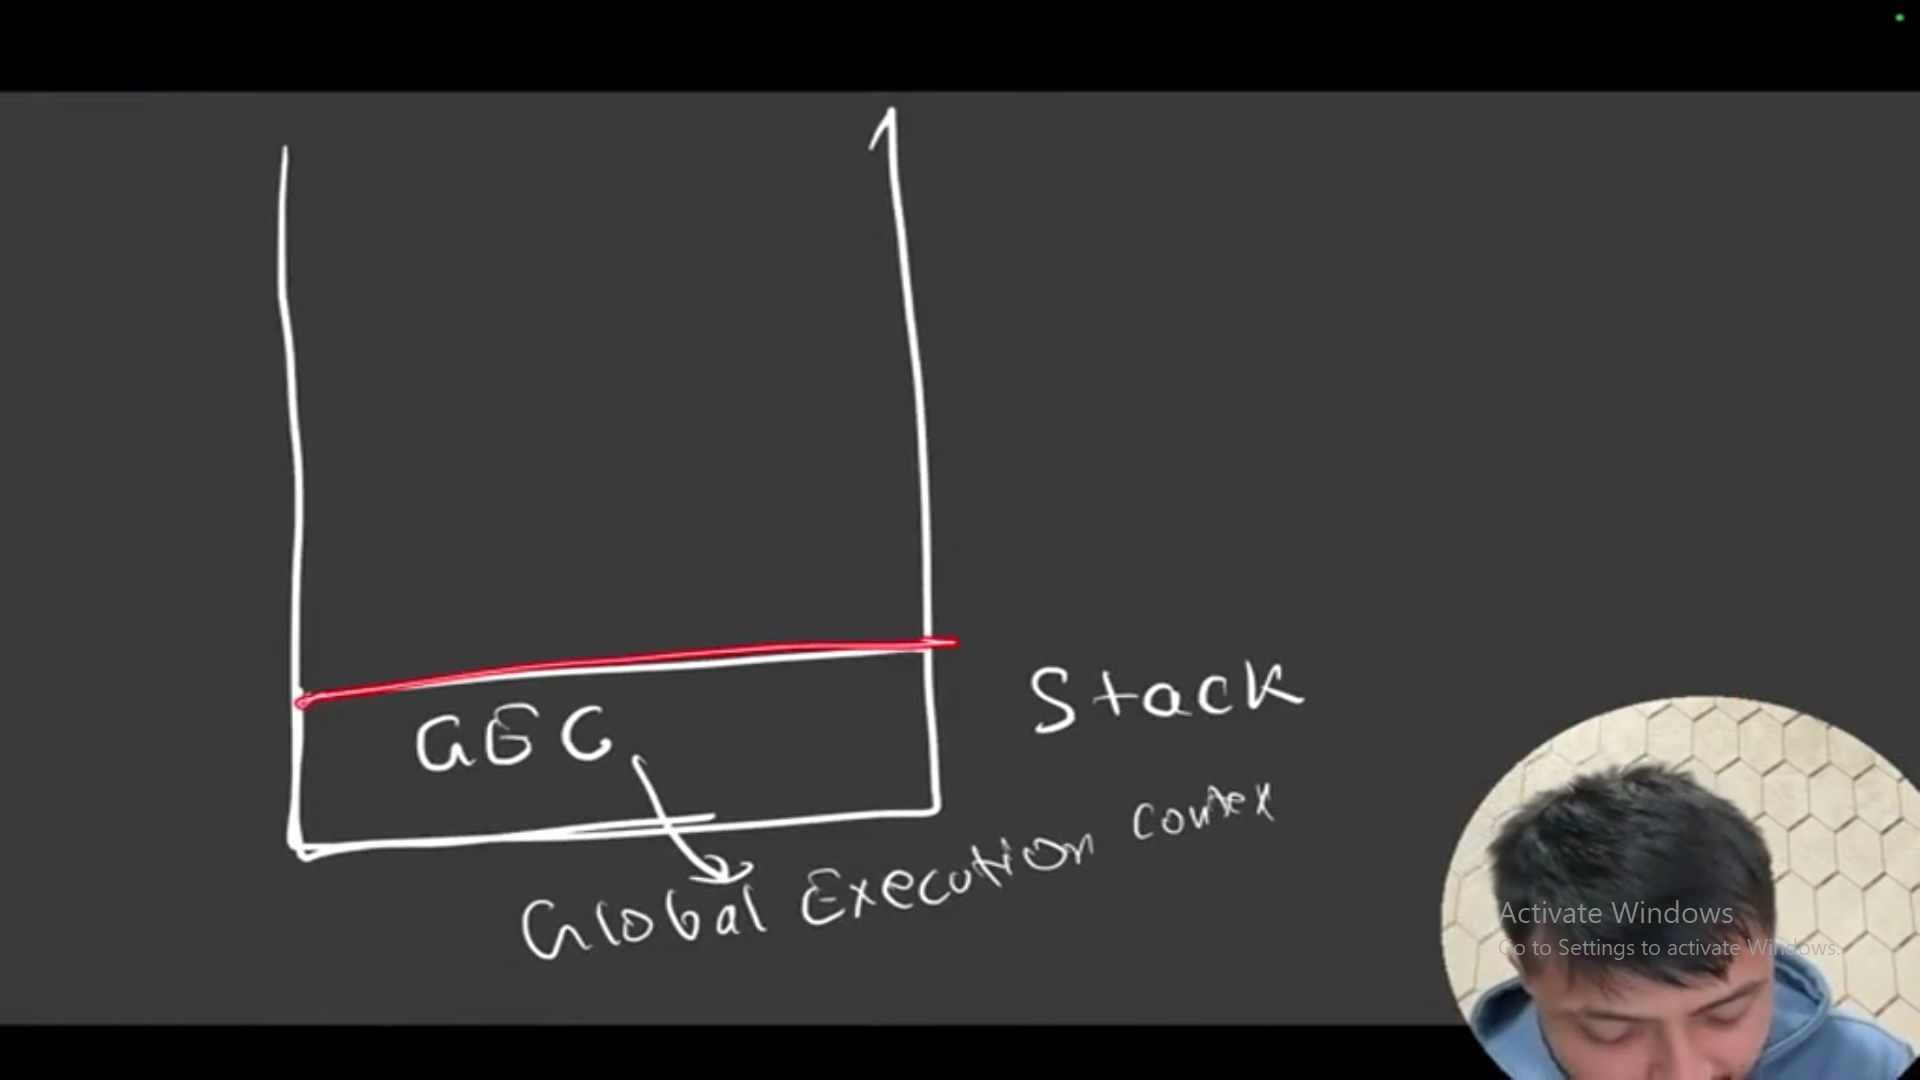 GEC
Stack
Global Execution contex
Activate Windows
Go to Settings to activate Windows.